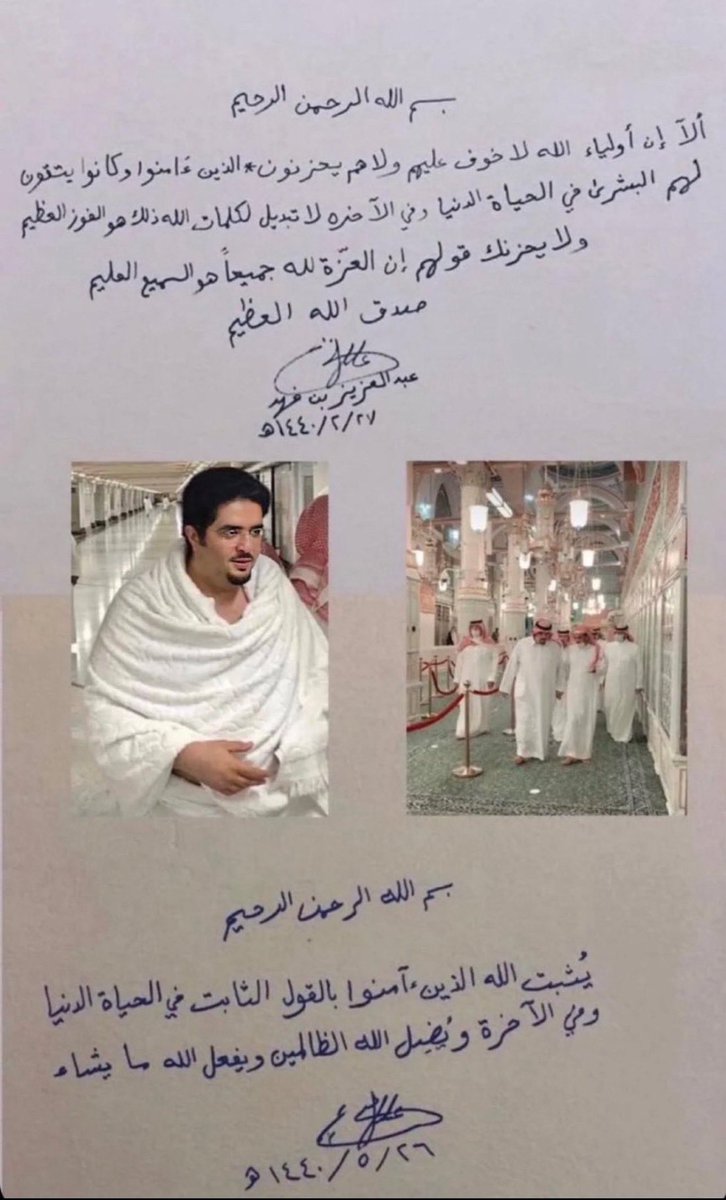 بسم الله الرحمن الرحيم
ألآ إن أولياء الله لا خوف عليهم ولا هم يحزنون * الذين ءامنوا وكانوا يتقون
لهم البشرى في الحياة الدنيا وفي الآخره لا تبديل لكلمات الله ذلك هو الفوز العظيم
ولا يحزنك قولهم إن العزّة لله جميعاً هو السميع العليم
صدق الله العظيم
عبدالعزيز بن فهد
١٤٤٠/٢/٢٧هـ
بسم الله الرحمن الرحيم
يُثبت الله الذين ءآمنوا بالقول الثابت في الحياة الدنيا
وفي الآخرة ويُضِل الله الظالمين ويفعل الله ما يشاء
١٤٤٠/٥/٢٦هـ